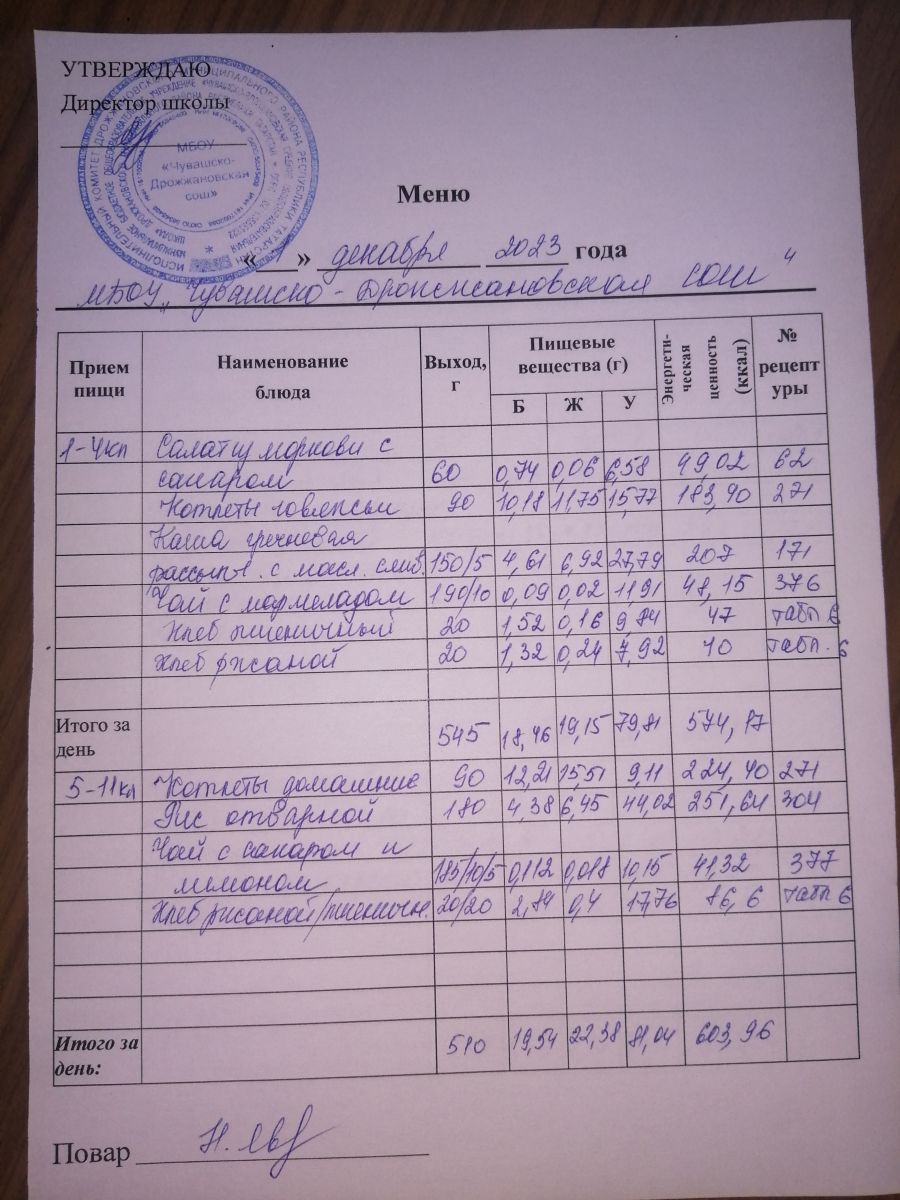 УТВЕРЖДАЮ
Директор школы
МБОУ
«Чувашско-
Дрожжановская
сош»
Меню
«1» декабря 2023 года
МБОУ "Чувашско-Дрожжановская СОШ"
Прием пищи Наименование блюда Выход, г Пищевые вещества (г) Энергетическая ценность (ккал) № рецептуры
Б Ж У
1-4кл Салат из моркови с
сахаром 60 0,74 0,06 6,58 49,02 62
Котлеты говяжьи 90 10,18 11,75 15,77 183,90 271
Каша гречневая
рассыпч. с масл. слив. 150/5 4,61 6,92 27,79 207 171
Чай с мармеладом 190/10 0,09 0,02 11,91 48,15 376
Хлеб пшеничный 20 1,52 0,16 9,84 47 табл 6
Хлеб ржаной 20 1,32 0,24 7,92 40 табл. 6
Итого за день 545 18,46 19,15 79,81 574,17
5-11кл Котлеты домашние 90 12,21 15,51 9,11 224,40 271
Рис отварной 180 4,38 6,45 44,02 251,64 304
Чай с сахаром и
лимоном 185/10/5 0,112 0,018 10,15 41,32 377
Хлеб ржаной/пшеничн. 20/20 2,84 0,4 17,76 86,6 табл 6
Итого за день: 510 19,54 22,38 81,04 603,96
Повар